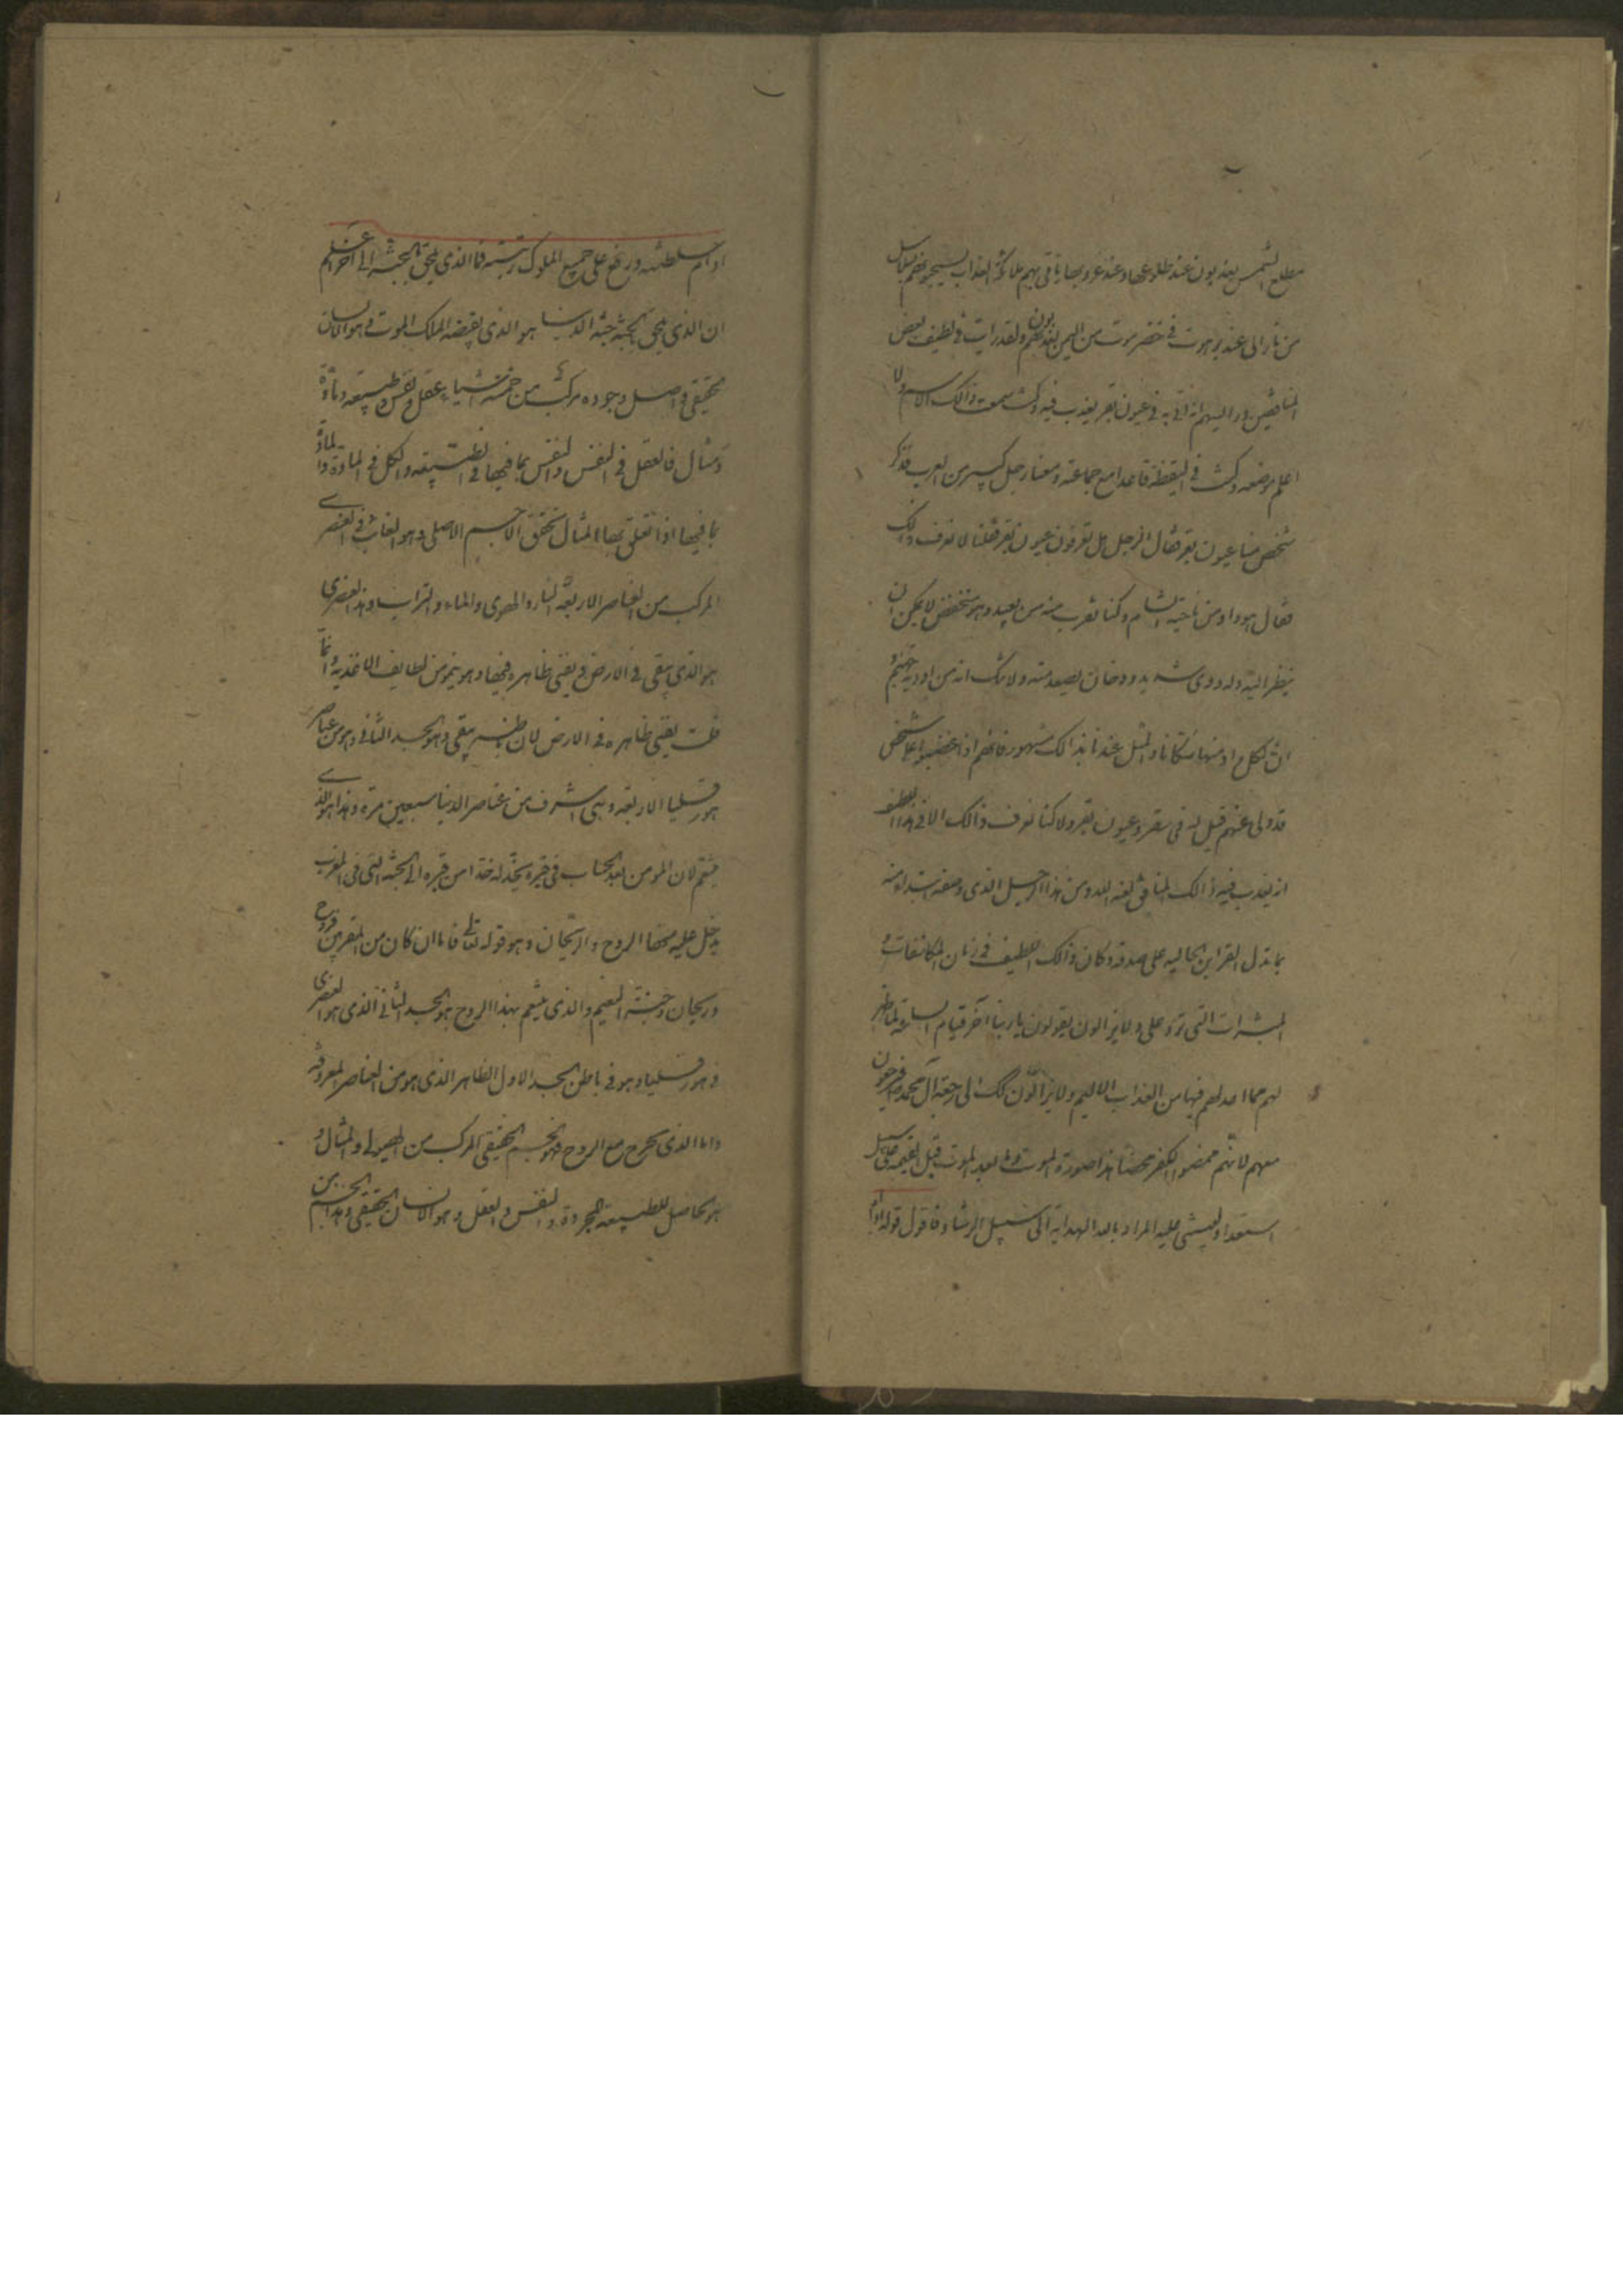 مطلع الشمس يعذبون عند طلوعها وعند غروبها ياتى بهم ملائكة العذاب يسحبونهم بسلاسل
من نار الى عند برهوت فى حضرموت من اليمن يعذبونهم ولقد رايت فى لطيف بعض
المنافقين
اعلم موضعه وكنت فى اليقظة قاعدا مع جماعة ومعنا رجل كبير من العرب فذكر
شخص منا عيون بقر فقال الرجل هل تعرفون عيون بقر فقلنا لا نعرف ذالك
فقال هو واد من ناحية الشام وكنا نقرب منه من بعيد وهو منخفض لا يمكن ان
ينظر اليه وله دوى شديد ودخان يصعد منه ولا شك انه من اودية جهنم و
ان لكل واد منها سكانا والمثل عندنا بذالك مشهور فانهم اذا غضبوا على شخص
قد ولى عنهم قيل له فى سقر وعيون بقر ولا كنا نعرف ذالك الا فى هذا اللطيف
ان يعذب فيه ذالك المنافق لعنه الله ومن هذا الرجل الذى وصفه
بما تدل القراين الحاليه على صدقه وكان ذالك اللطيف فى زمان المكاشفات و
المبشرات التى ترد على ولا يزالون يقولون يا ربنا آخر قيام الساعة لما ظهر
لهم مما اعد لهم فيها من العذاب الاليم ولا يزالون كذلك الى رجعة آل محمد ص فيرجعون
معهم لانهم ممحضوا الكفر محضا هذا صورة الموت وما بعد الموت قبل القيمة على سبيل
المراد بالعبد الهداية الى سبيل الرشاد فاقول قوله ادام
ادام سلطنته ورفع على جميع الملوك رتبته فما الذى يلحق بالجنة الى آخر اعلم
ان الذى يلحق بالجنة جنة الدنيا هو الذى يقبضه الملك الموت وهو الانسان
الحقيقى واصل وجوده مركب من خمسة اشياء عقل ونفس وطبيعة ومادة
ومثال فالعقل فى النفس والنفس بما فيها فى الطبيعة والكل فى المادة والمادة
بما فيها اذا تعلق بها المثال تحقق الجسم الاصلى وهو الغائب فى العنصرى
المركب من العناصر الاربعة النار والهوى والماء والتراب وهذا العنصرى
هو الذى يبقى فى الارض ويفنى ظاهره فيها وهو ينمو من لطايف الاغذية وانما
قلت يفنى ظاهره فى الارض لان باطنه يبقى وهو الجسد الثانى وهو من عناصر
هورقليا الاربعة وهى اشرف من عناصر الدنيا سبعين مرة وهذا هو الذى
يتنعم لان المومن بعد الحساب فى قبره يخد له خدا من قبره الى الجنة التى فى المغرب
يدخل عليه منها الروح والريحان وهو قوله تعالى فاما ان كان من المقربين فروح
وريحان وجنة النعيم والذى يتنعم بهذا الروح هو الجسد الثانى الذى هو العنصرى
فى هورقليا وهو فى باطن الجسد الاول الظاهر الذى هو من العناصر المعروفة
واما الذى يخرج مع الروح فهو الجسم الحقيقى المركب من الهيولى والمثال و
هو الحامل للطبيعة المجردة والنفس والعقل وهو الانسان الحقيقى وهذا الجسم من